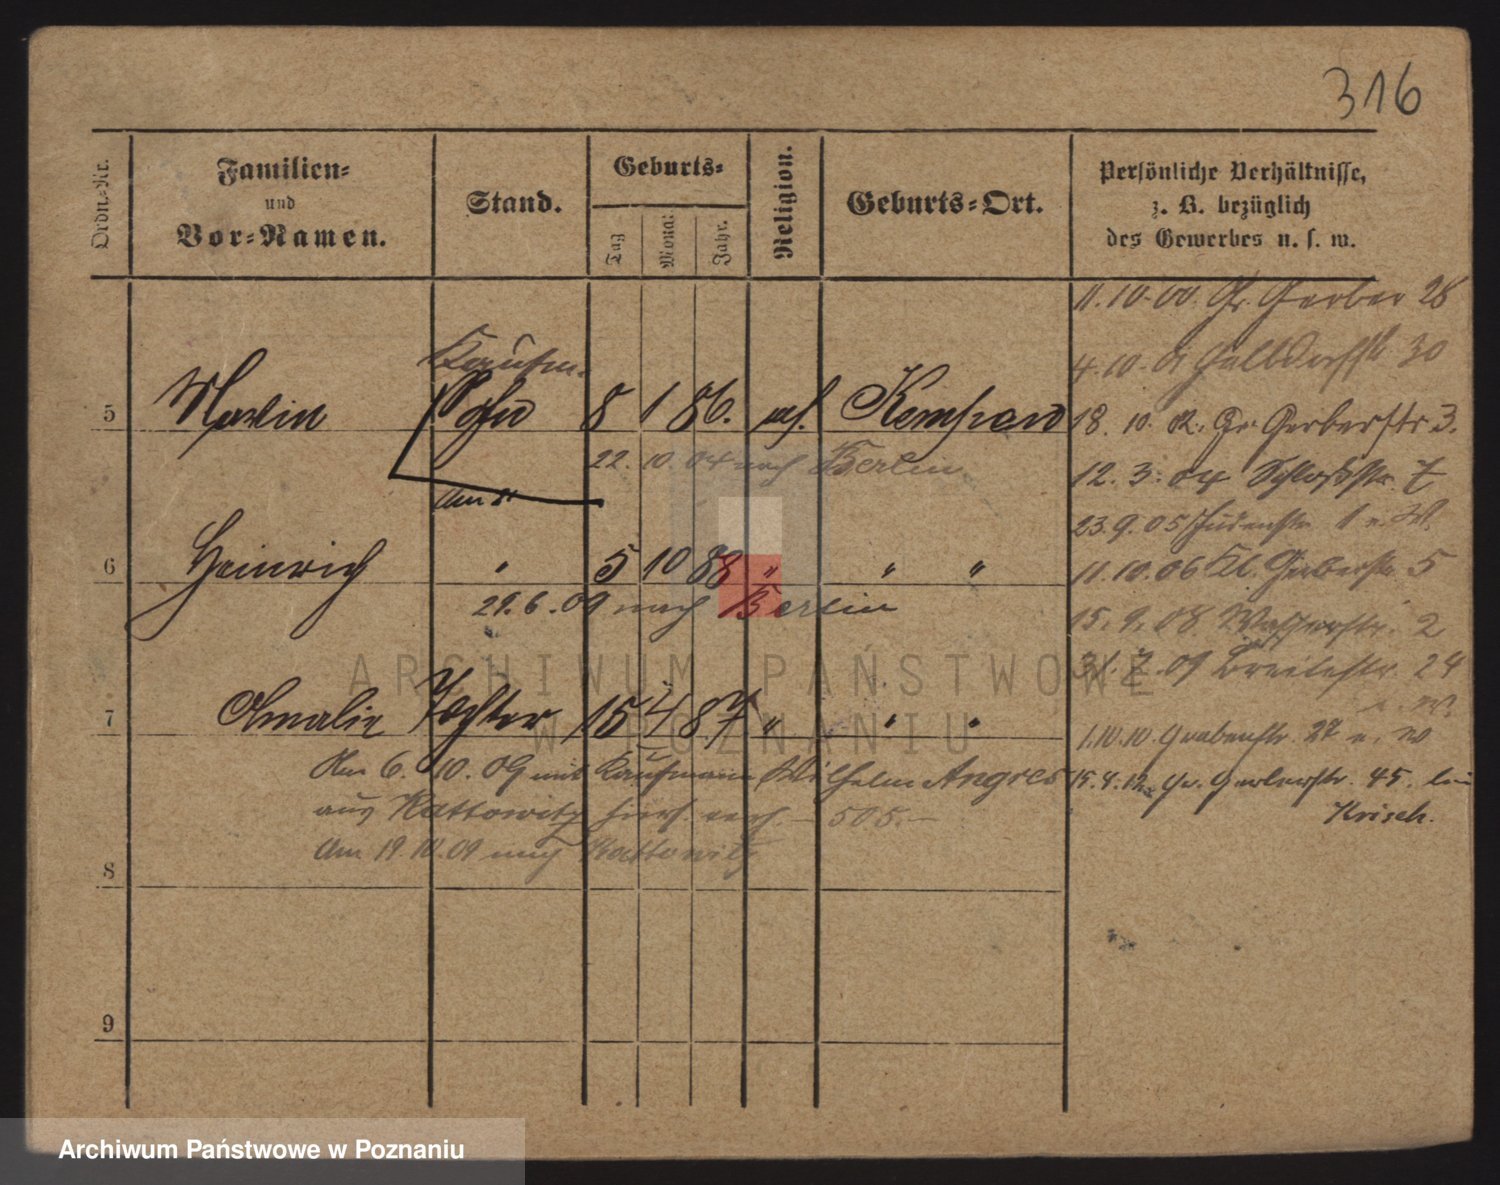 316
Ordn.-Nr.
Familien-
und
Vor-Namen.
Stand.
Geburts-
Tag
Monat
Jahr.
Religion.
Geburts-Ort.
Persönliche Verhältnisse,
z. B. bezüglich
des Gewerbes u. s. w.
11. 10. 00. Gr. Gerber 28
4. 10. 30
Kaufm.
5 Sohn 8 1 86. Kempen
18. 10. Gr. Gerberstr. 3.
22. 10. 04 nach Berlin
12. 3. 04 Schloßstr. 7
Am
23. 9. 05 Judenstr. 1
6 Heinrich " 5 10 88 " " "
11. 10. 06 Kl. Gerberstr. 5
29. 6. 09 nach Berlin
15. 9. 08. Wasserstr. 2
31. 7. 09 Breitestr. 24
ARCHIWUM PAŃSTWOWE
W POZNANIU
7 Amalie Tochter 15 4 87 " " "
1. 10. 10. Grabenstr. 27
Am 6. 10. 09 mit Kaufmann Wilhelm Angres
15. 4. 12. Gr. Gerberstr. 45. bei
aus Kattowitz — 505. —
Krisch.
Am 19. 10. 09 nach Kattowitz
8
9
Archiwum Państwowe w Poznaniu